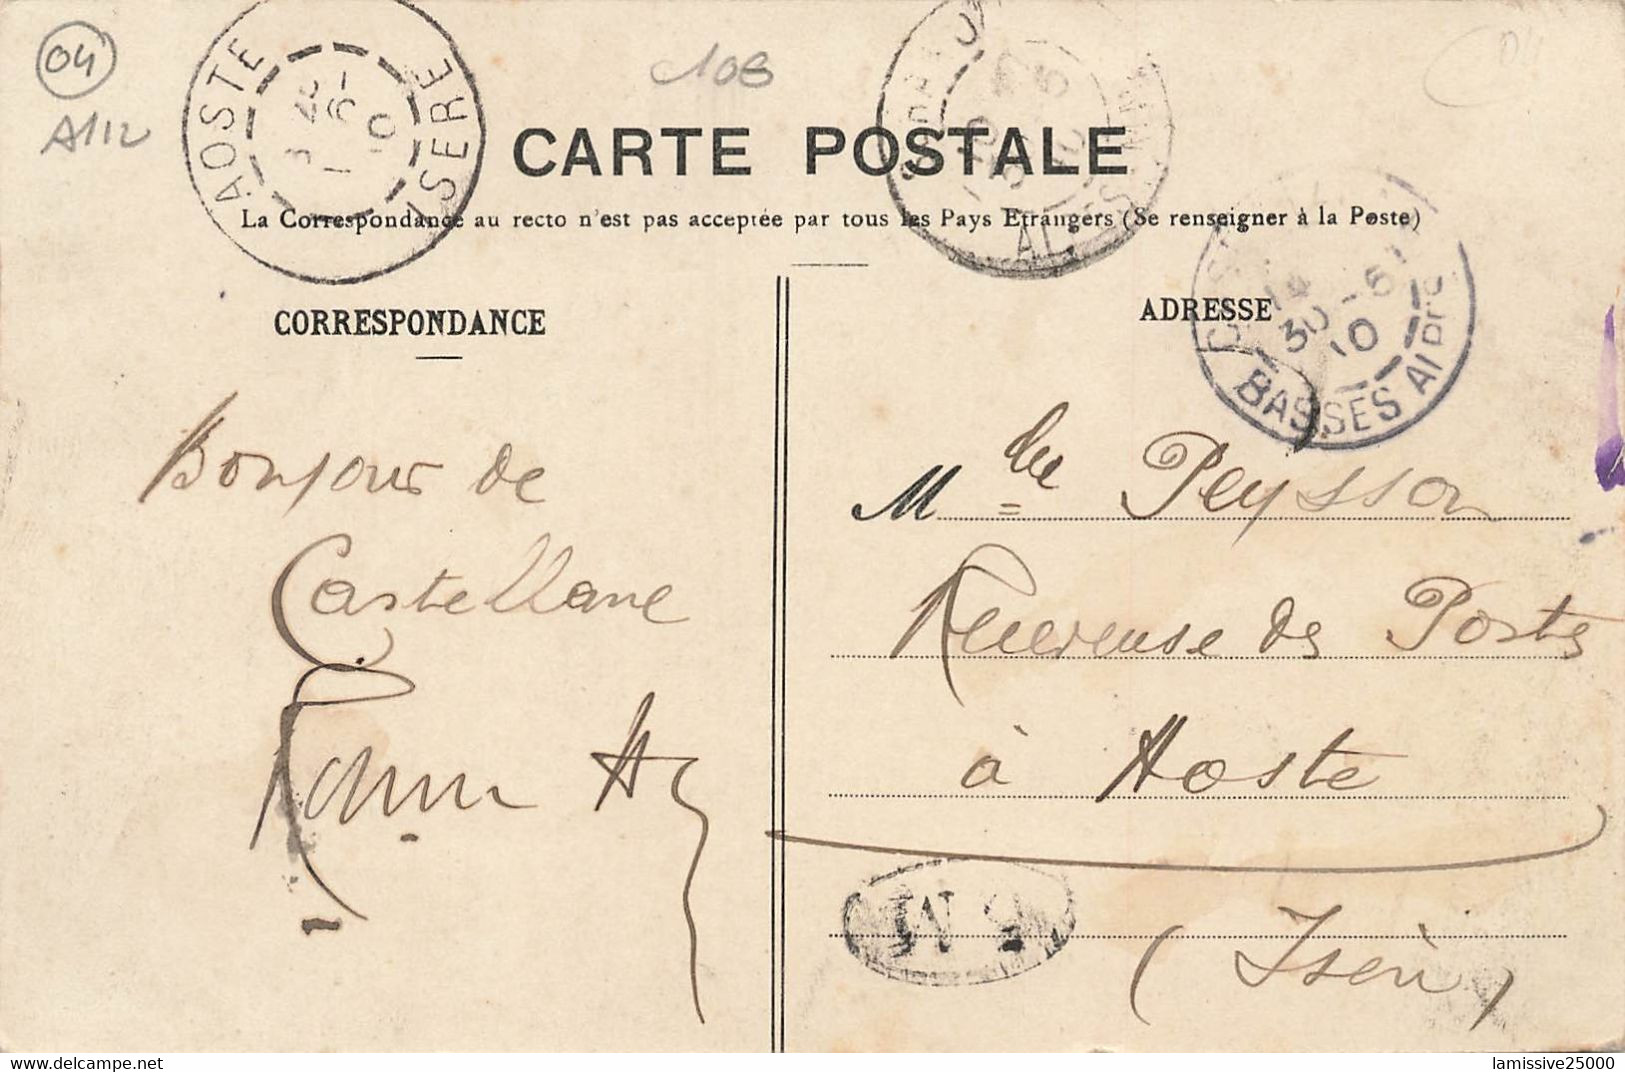 04
A112
108
04
AOSTE
ISERE
1 - 6
10
CARTE POSTALE
La Correspondance au recto n'est pas acceptée par tous les Pays Etrangers (Se renseigner à la Poste)
ALPES
14
30 - 6
10
BASSES ALPES
CORRESPONDANCE
ADRESSE
Bonjour de
Castellane
Mlle Peysson
Receveuse des Postes
à Aoste
(Isère)
delcampe.net
lamissive25000